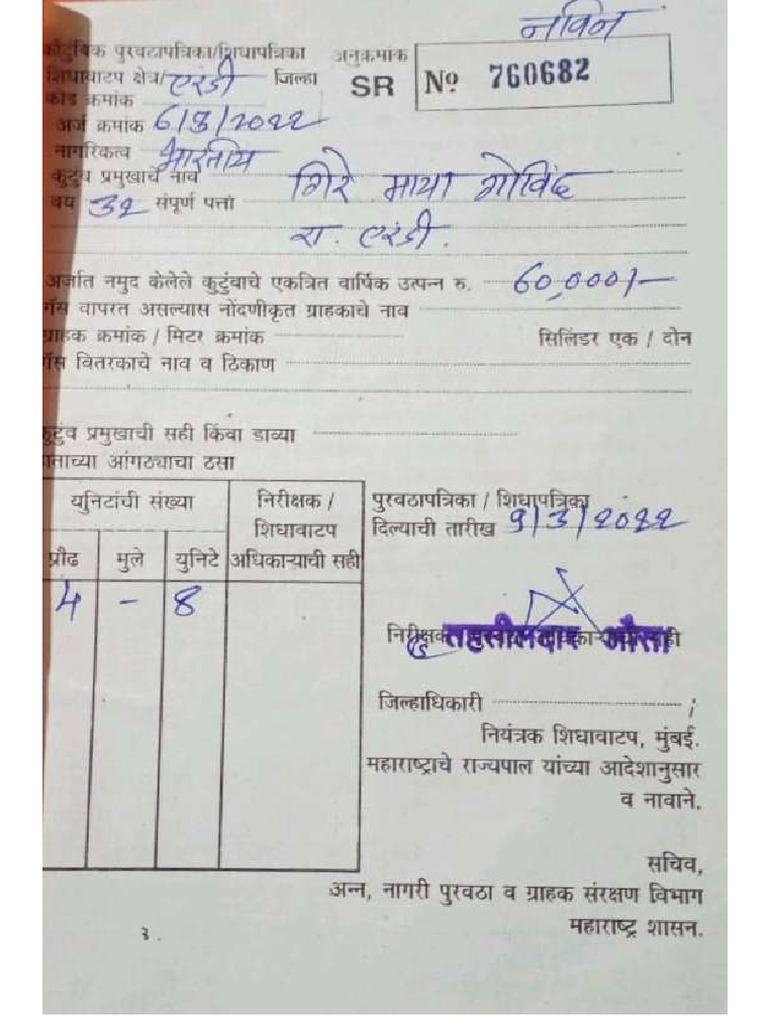 नविन
कौटुंबिक पुरवठापत्रिका/शिधापत्रिका अनुक्रमांक
SR Nº 760682
शिधावाटप क्षेत्र/ एरंडी जिल्हा
कार्ड क्रमांक
अर्ज क्रमांक 6/3/2022
नागरिकत्व भारतीय
कुटुंब प्रमुखाचे नाव गिरे माया गोविंद
वय 32 संपूर्ण पत्ता
रा. एरंडी.
अर्जात नमुद केलेले कुटुंबाचे एकत्रित वार्षिक उत्पन्न रु. 60,000/-
गॅस वापरत असल्यास नोंदणीकृत ग्राहकाचे नाव
ग्राहक क्रमांक / मिटर क्रमांक सिलिंडर एक / दोन
गॅस वितरकाचे नाव व ठिकाण
कुटुंब प्रमुखाची सही किंवा डाव्या
हाताच्या आंगठ्याचा ठसा
युनिटांची संख्या निरीक्षक / शिधावाटप अधिकाऱ्याची सही
प्रौढ मुले युनिटे
4 - 8
पुरवठापत्रिका / शिधापत्रिका
दिल्याची तारीख 9/3/2022
निरीक्षक
तहसीलदार औसा
जिल्हाधिकारी
नियंत्रक शिधावाटप, मुंबई.
महाराष्ट्राचे राज्यपाल यांच्या आदेशानुसार
व नावाने.
सचिव,
अन्न, नागरी पुरवठा व ग्राहक संरक्षण विभाग
महाराष्ट्र शासन.
३.